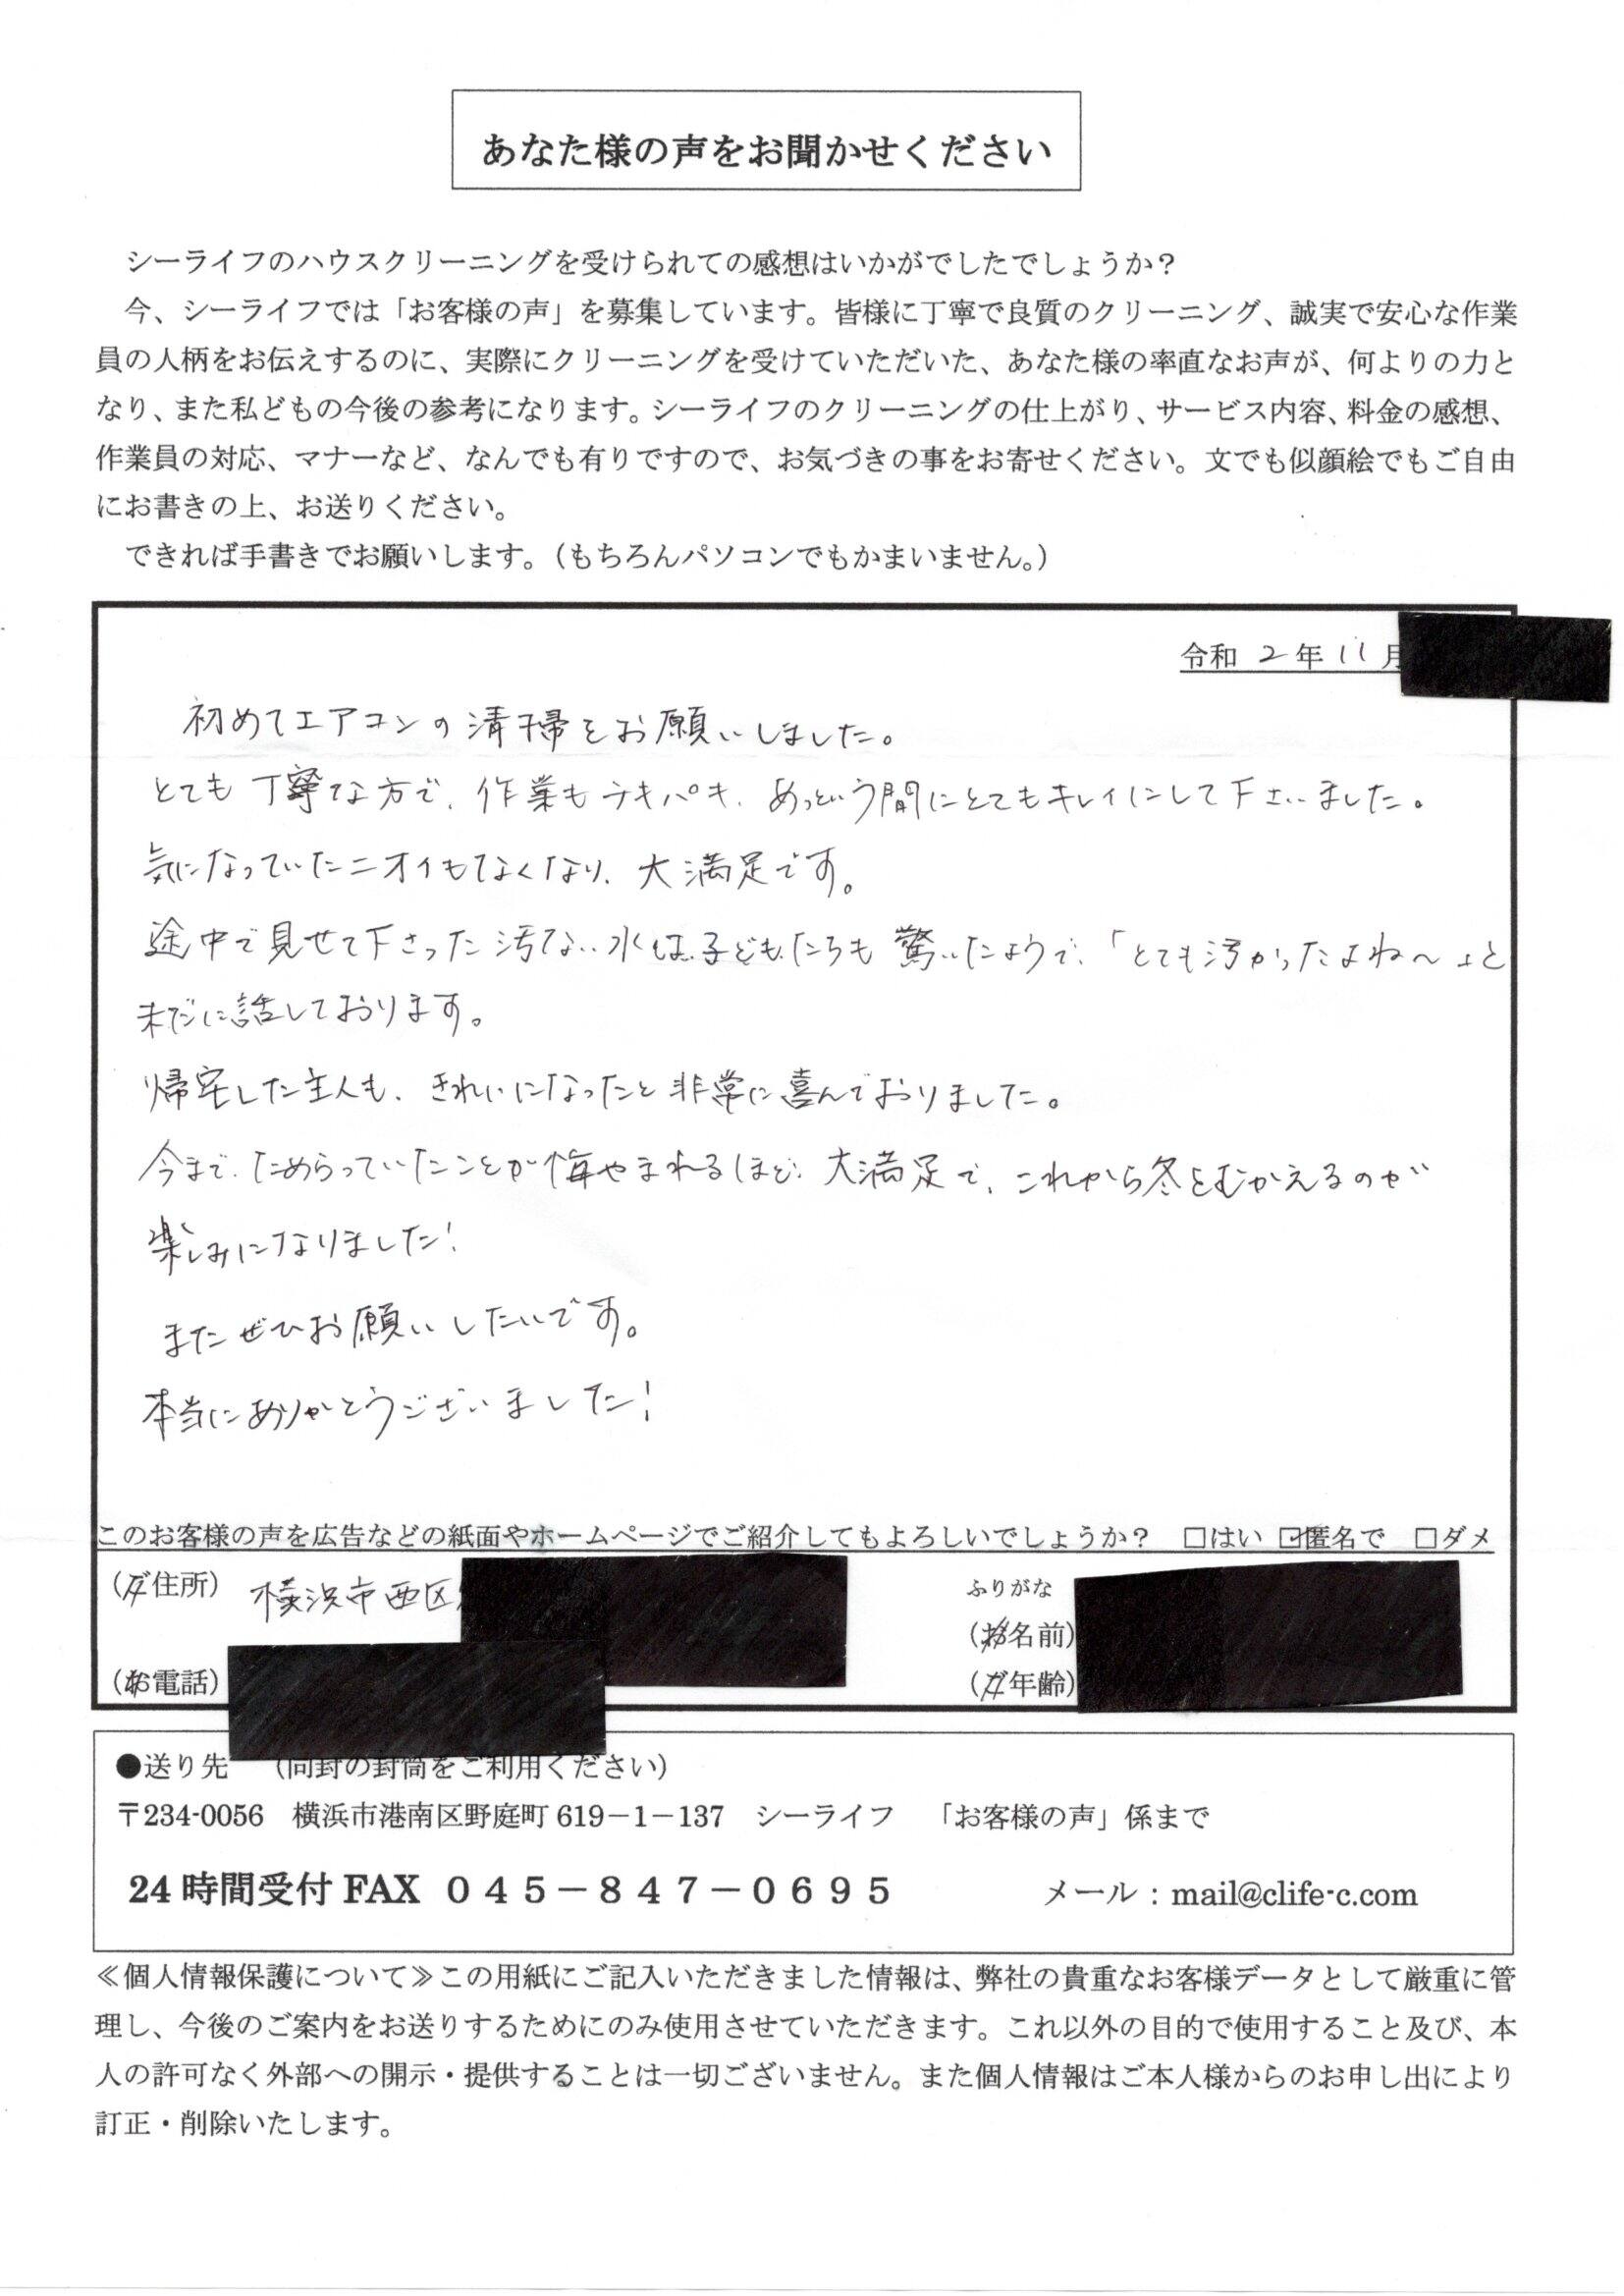 あなた様の声をお聞かせください
シーライフのハウスクリーニングを受けられての感想はいかがでしたでしょうか？
今、シーライフでは「お客様の声」を募集しています。皆様に丁寧で良質のクリーニング、誠実で安心な作業
員の人柄をお伝えするのに、実際にクリーニングを受けていただいた、あなた様の率直なお声が、何よりの力と
なり、また私どもの今後の参考になります。シーライフのクリーニングの仕上がり、サービス内容、料金の感想、
作業員の対応、マナーなど、なんでも有りですので、お気づきの事をお寄せください。文でも似顔絵でもご自由
にお書きの上、お送りください。
できれば手書きでお願いします。（もちろんパソコンでもかまいません。）
令和 2 年 11 月
初めてエアコンの清掃をお願いしました。
とても丁寧な方で、作業もテキパキ、あっという間にとてもキレイにして下さいました。
気になっていたニオイもなくなり、大満足です。
途中で見せて下さった汚ない水は、子どもたちも驚いたようで、「とても汚かったよね～」と
未だに話しております。
帰宅した主人も、きれいになったと非常に喜んでおりました。
今まで、ためらっていたことが悔やまれるほど、大満足で、これから冬をむかえるのが
楽しみになりました！
またぜひお願いしたいです。
本当にありがとうございました！
このお客様の声を広告などの紙面やホームページでご紹介してもよろしいでしょうか？ □はい ☑匿名で □ダメ
（ご住所） 横浜市西区
ふりがな
（お名前）
（お電話）
（ご年齢）
●送り先 （同封の封筒をご利用ください）
〒234-0056 横浜市港南区野庭町 619－1－137 シーライフ 「お客様の声」係まで
24 時間受付 FAX ０４５－８４７－０６９５ メール：mail@clife-c.com
≪個人情報保護について≫この用紙にご記入いただきました情報は、弊社の貴重なお客様データとして厳重に管
理し、今後のご案内をお送りするためにのみ使用させていただきます。これ以外の目的で使用すること及び、本
人の許可なく外部への開示・提供することは一切ございません。また個人情報はご本人様からのお申し出により
訂正・削除いたします。